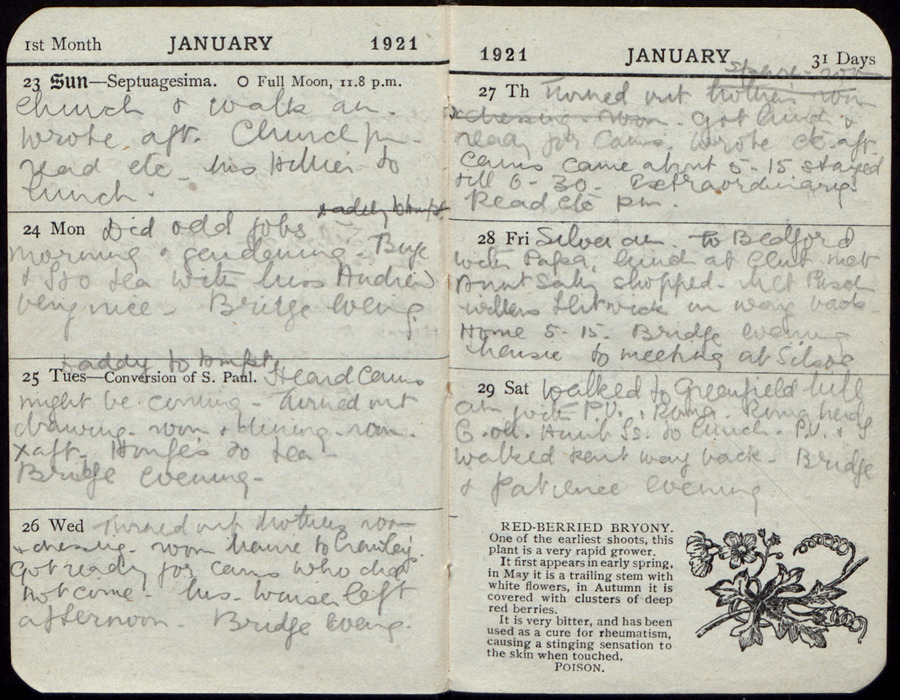 1st Month JANUARY 1921
23 Sun—Septuagesima. O Full Moon, 11.8 p.m.
Church & walk am.
Wrote aft. Church pm
read etc - Miss Hillier to
lunch.
24 Mon Did odd jobs
morning & gardening - Buje
& I to tea with Miss Andrew
very nice - Bridge evening
Daddy to
25 Tues—Conversion of S. Paul. Heard Cams
might be coming - Turned out
drawing-room & dining-room.
aft. to tea
Bridge evening-
26 Wed Turned out Mothers room
& dressing-room
Got ready for Cams who did
not come - left
afternoon. Bridge evening.
1921 JANUARY 31 Days
27 Th Turned out
dressing-room. Got lunch &
ready for Cams. Wrote etc aft
Cams came about 5-15 stayed
till 6-30- Extraordinary.
Read etc pm.
28 Fri Silver am. to Bedford
with Papa, lunch at Club met
Aunt Sally shopped- Met
Flitwick on way back-
Home 5-15. Bridge evening
to meeting at Silsoe
29 Sat Walked to Greenfield hill
am with P.V. & Roma. Roma
Aunt Ss. to lunch. P.V. & I
walked part way back - Bridge
& patience evening
RED-BERRIED BRYONY.
One of the earliest shoots, this
plant is a very rapid grower.
It first appears in early spring,
in May it is a trailing stem with
white flowers, in Autumn it is
covered with clusters of deep
red berries.
It is very bitter, and has been
used as a cure for rheumatism,
causing a stinging sensation to
the skin when touched.
POISON.